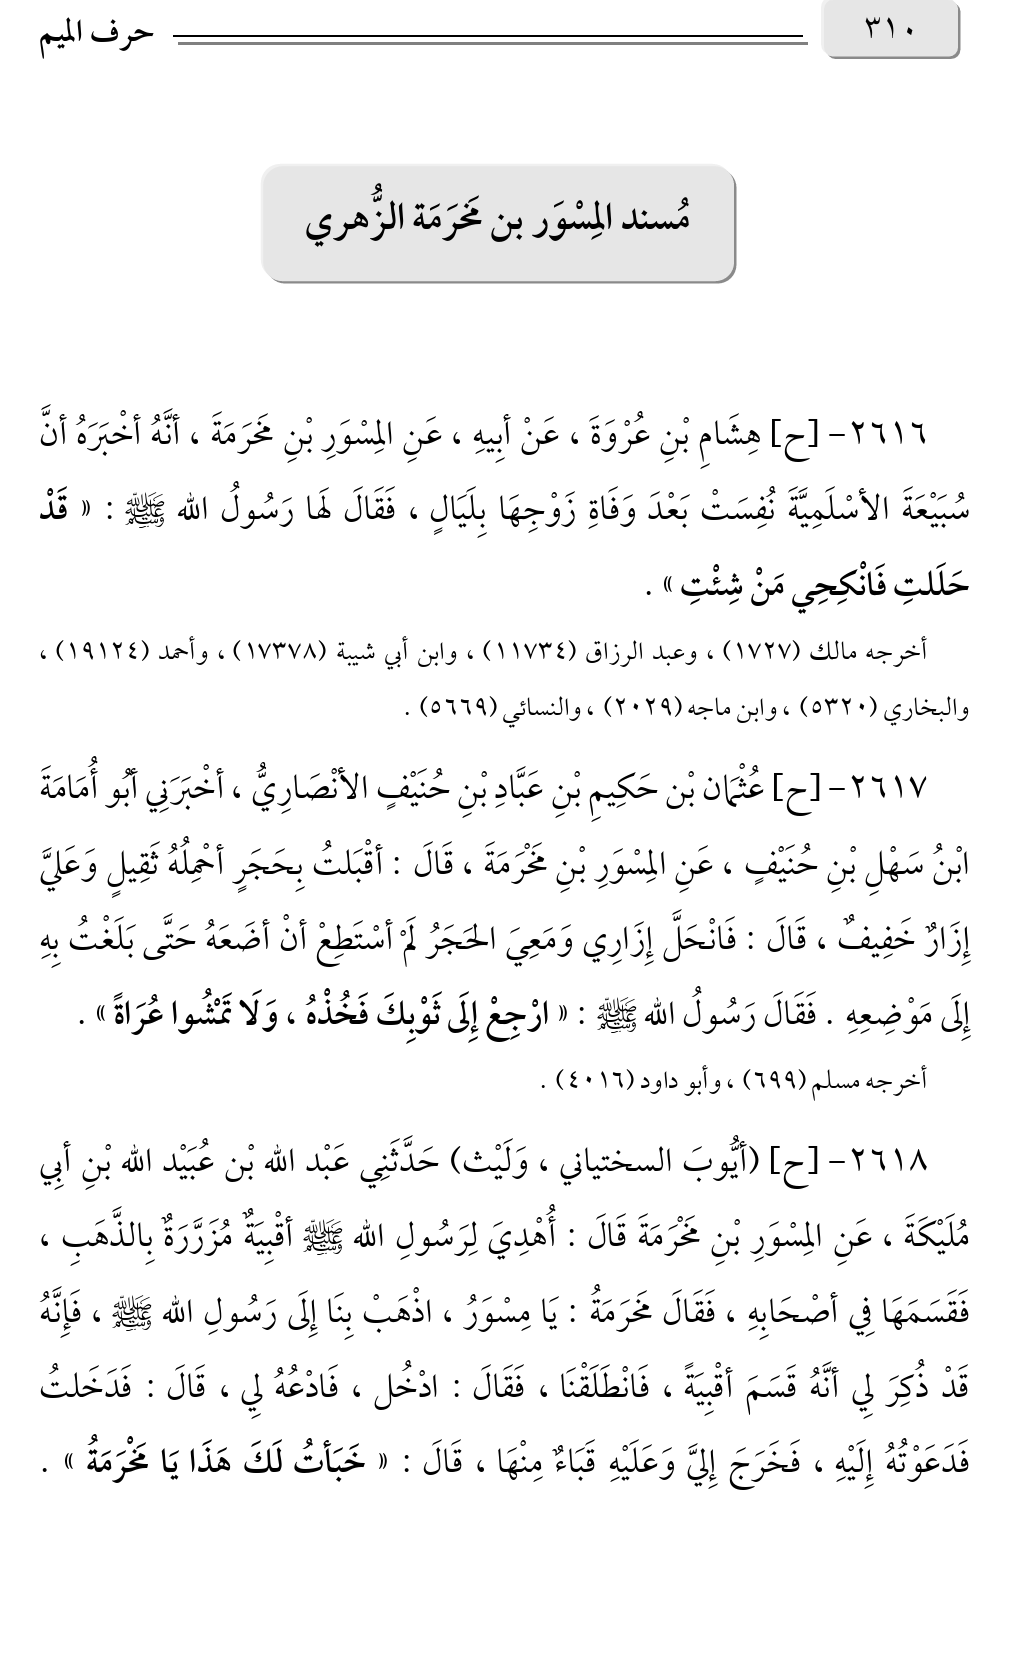 ٣١٠
حرف الميم
مُسند المِسْوَر بن مَخرَمَة الزُّهري
٢٦١٦- [ح] هِشَامِ بْنِ عُرْوَةَ ، عَنْ أبِيهِ ، عَنِ المِسْوَرِ بْنِ مَخرَمَةَ ، أنَّهُ أخْبَرَهُ أنَّ
سُبَيْعَةَ الأسْلَمِيَّةَ نُفِسَتْ بَعْدَ وَفَاةِ زَوْجِهَا بِلَيَالٍ ، فَقَالَ لَهَا رَسُولُ الله ﷺ : « قَدْ
حَلَلتِ فَانْكِحِي مَنْ شِئْتِ » .
أخرجه مالك (١٧٢٧) ، وعبد الرزاق (١١٧٣٤) ، وابن أبي شيبة (١٧٣٧٨) ، وأحمد (١٩١٢٤) ،
والبخاري (٥٣٢٠) ، وابن ماجه (٢٠٢٩) ، والنسائي (٥٦٦٩) .
٢٦١٧- [ح] عُثْمَان بْن حَكِيمِ بْنِ عَبَّادِ بْنِ حُنَيْفٍ الأنْصَارِيُّ ، أخْبَرَنِي أبُو أُمَامَةَ
ابْنُ سَهْلِ بْنِ حُنَيْفٍ ، عَنِ المِسْوَرِ بْنِ مَخْرَمَةَ ، قَالَ : أقْبَلتُ بِحَجَرٍ أحْمِلُهُ ثَقِيلٍ وَعَلَيَّ
إِزَارٌ خَفِيفٌ ، قَالَ : فَانْحَلَّ إِزَارِي وَمَعِيَ الحَجَرُ لَمْ أسْتَطِعْ أنْ أضَعَهُ حَتَّى بَلَغْتُ بِهِ
إِلَى مَوْضِعِهِ . فَقَالَ رَسُولُ الله ﷺ : « ارْجِعْ إِلَى ثَوْبِكَ فَخُذْهُ ، وَلَا تَمْشُوا عُرَاةً » .
أخرجه مسلم (٦٩٩) ، وأبو داود (٤٠١٦) .
٢٦١٨- [ح] (أيُّوبَ السختياني ، وَلَيْث) حَدَّثَنِي عَبْد الله بْن عُبَيْد الله بْنِ أبِي
مُلَيْكَةَ ، عَنِ المِسْوَرِ بْنِ مَخْرَمَةَ قَالَ : أُهْدِيَ لِرَسُولِ الله ﷺ أقْبِيَةٌ مُزَرَّرَةٌ بِالذَّهَبِ ،
فَقَسَمَهَا فِي أصْحَابِهِ ، فَقَالَ مَخرَمَةُ : يَا مِسْوَرُ ، اذْهَبْ بِنَا إِلَى رَسُولِ الله ﷺ ، فَإِنَّهُ
قَدْ ذُكِرَ لِي أنَّهُ قَسَمَ أقْبِيَةً ، فَانْطَلَقْنَا ، فَقَالَ : ادْخُل ، فَادْعُهُ لِي ، قَالَ : فَدَخَلتُ
فَدَعَوْتُهُ إِلَيْهِ ، فَخَرَجَ إِلِيَّ وَعَلَيْهِ قَبَاءٌ مِنْهَا ، قَالَ : « خَبَأتُ لَكَ هَذَا يَا مَخْرَمَةُ » .